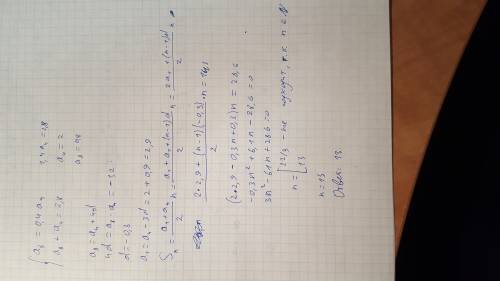 { a₈ = 0,4 a₄
a₈ + a₄ = 2,8
1,4 a₄ = 2,8
a₄ = 2
a₈ = 0,8
a₈ = a₄ + 4d
4d = a₈ - a₄ = -1,2
d = -0,3
a₁ = a₄ - 3d = 2 + 0,9 = 2,9
Sₙ = (a₁ + aₙ)/2 n = (a₁ + a₁ + (n-1)d)/2 n = (2a₁ + (n-1)d)/2 n
(2·2,9 + (n-1)(-0,3))/2 · n = 14,3
(2·2,9 - 0,3n + 0,3)n = 28,6
-0,3n² + 6,1n - 28,6 = 0
3n² - 61n + 286 = 0
n = [ 22/3 - не подходит, т.к. n ∈ N
13
n = 13
Ответ: 13.